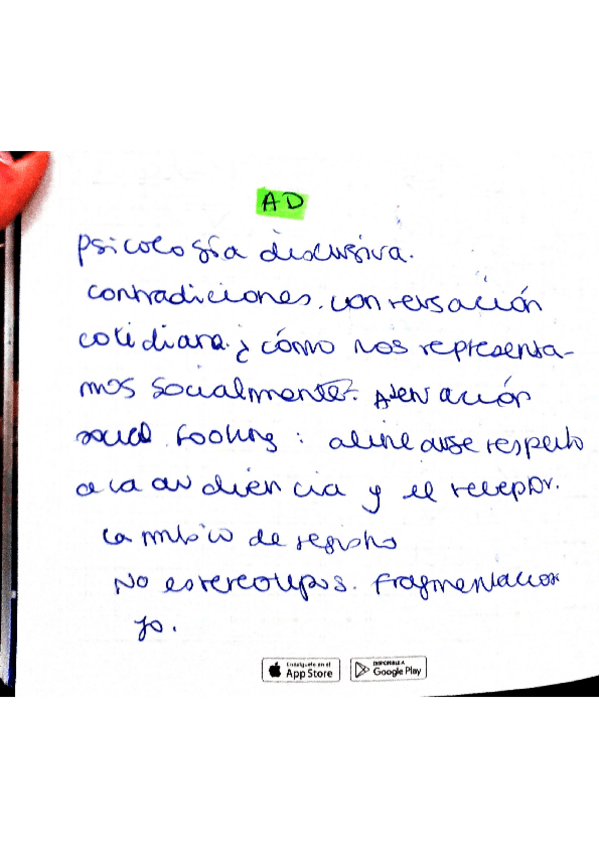 AD
psicología discursiva.
contradiciones. conversación
cotidiana. ¿cómo nos representa-
mos socialmente?. Atenuación
social. footing: alinearse respecto
a la audiencia y el receptor.
cambio de registro
No estereotipos. fragmentacion
yo.
Consíguelo en el
App Store
DISPONIBLE A
Google Play